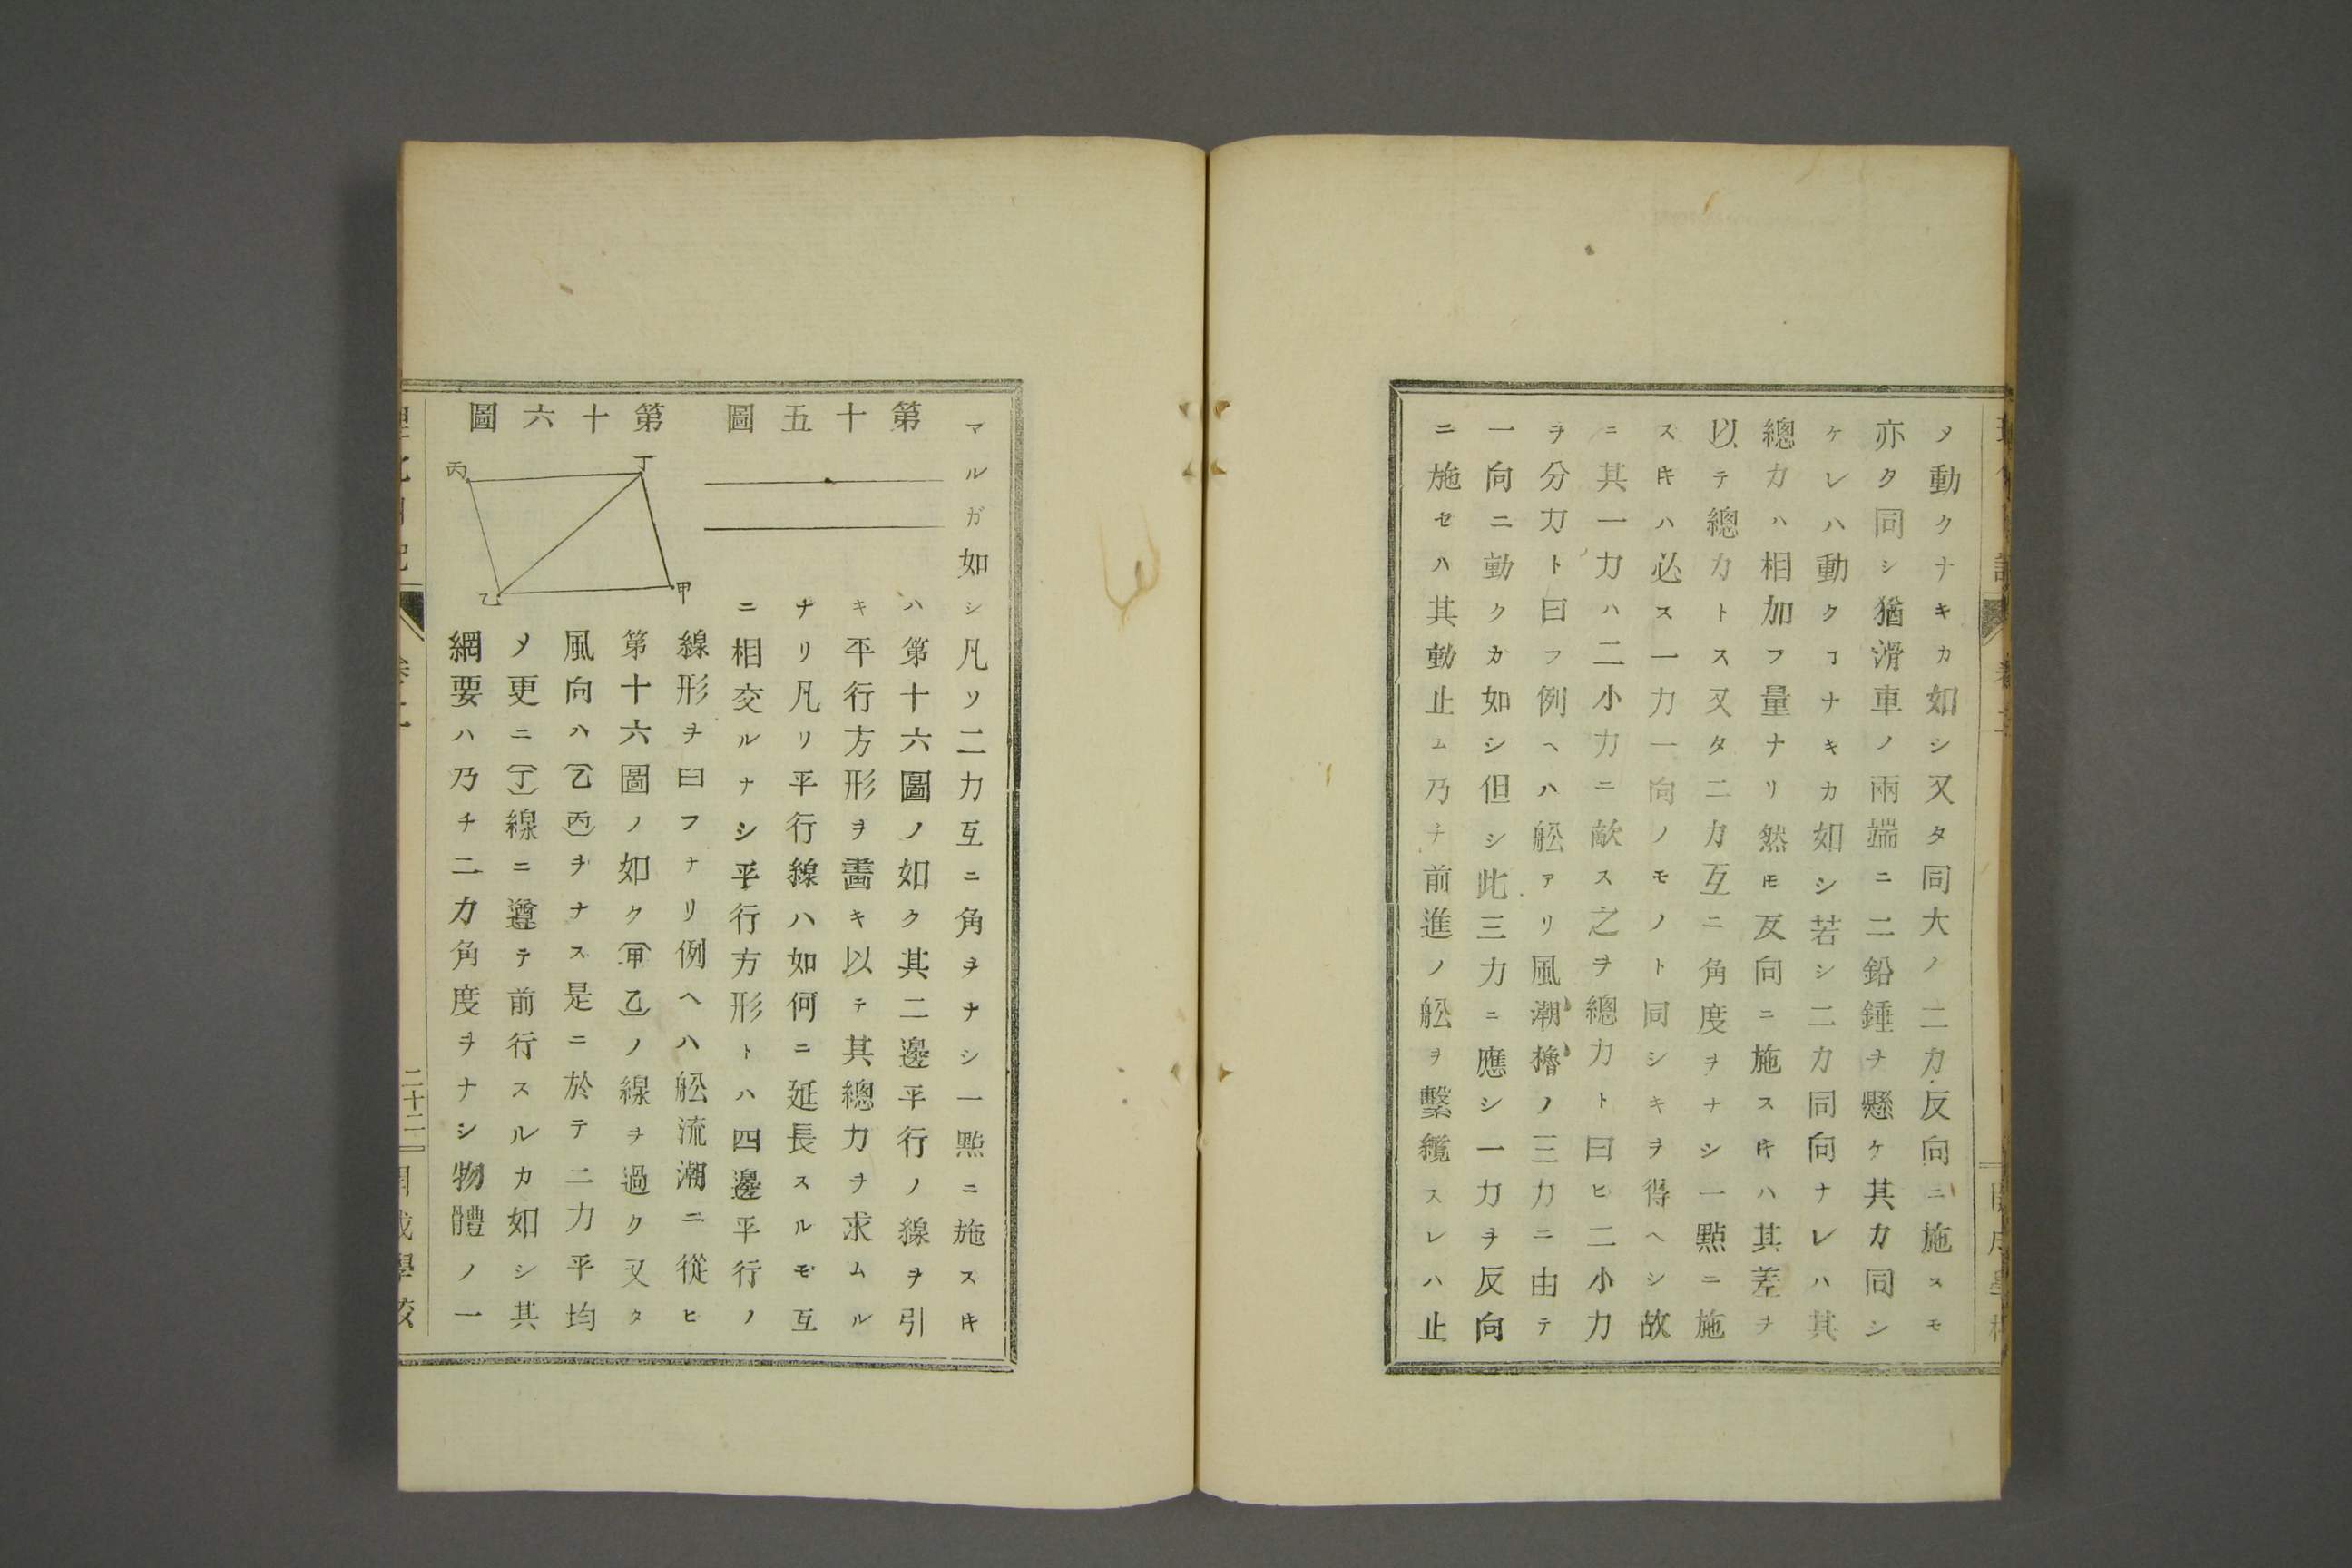 メ動クナキカ如シ又タ同大ノ二力反向ニ施スモ
亦タ同シ猶滑車ノ兩端ニ二鉛錘ヲ懸ケ其力同シ
ケレハ動クヿナキカ如シ若シ二力同向ナレハ其
總力ハ相加フ量ナリ然㕴反向ニ施スキハ其差ヲ
以テ總力トス又タ二力互ニ角度ヲナシ一點ニ施
スキハ必ス一力一向ノモノト同シキヲ得ヘシ故
ニ其一力ハ二小力ニ敵ス之ヲ總力ト曰ヒ二小力
ヲ分力ト曰フ例ヘハ舩アリ風潮櫓ノ三力ニ由テ
一向ニ動クカ如シ但シ此三力ニ應シ一力ヲ反向
ニ施セハ其動止ム乃チ前進ノ舩ヲ繫纜スレハ止
マルガ如シ凡ソ二力互ニ角ヲナシ一㸃ニ施スキ
ハ第十六圖ノ如ク其二邊平行ノ線ヲ引
キ平行方形ヲ畵キ以テ其總力ヲ求ムル
ナリ凡リ平行線ハ如何ニ延長スルモ互
ニ相交ルナシ平行方形トハ四邊平行ノ
線形ヲ曰フナリ例ヘハ舩流潮ニ從ヒ
第十六圖ノ如ク(甲乙)ノ線ヲ過ク又タ
風向ハ(乙丙)ヲナス是ニ於テ二力平均
メ更ニ(丁)線ニ遵テ前行スルカ如シ其
綱要ハ乃チ二力角度ヲナシ物體ノ一
第十五圖
第十六圖
丙
丁
乙
甲
二十二